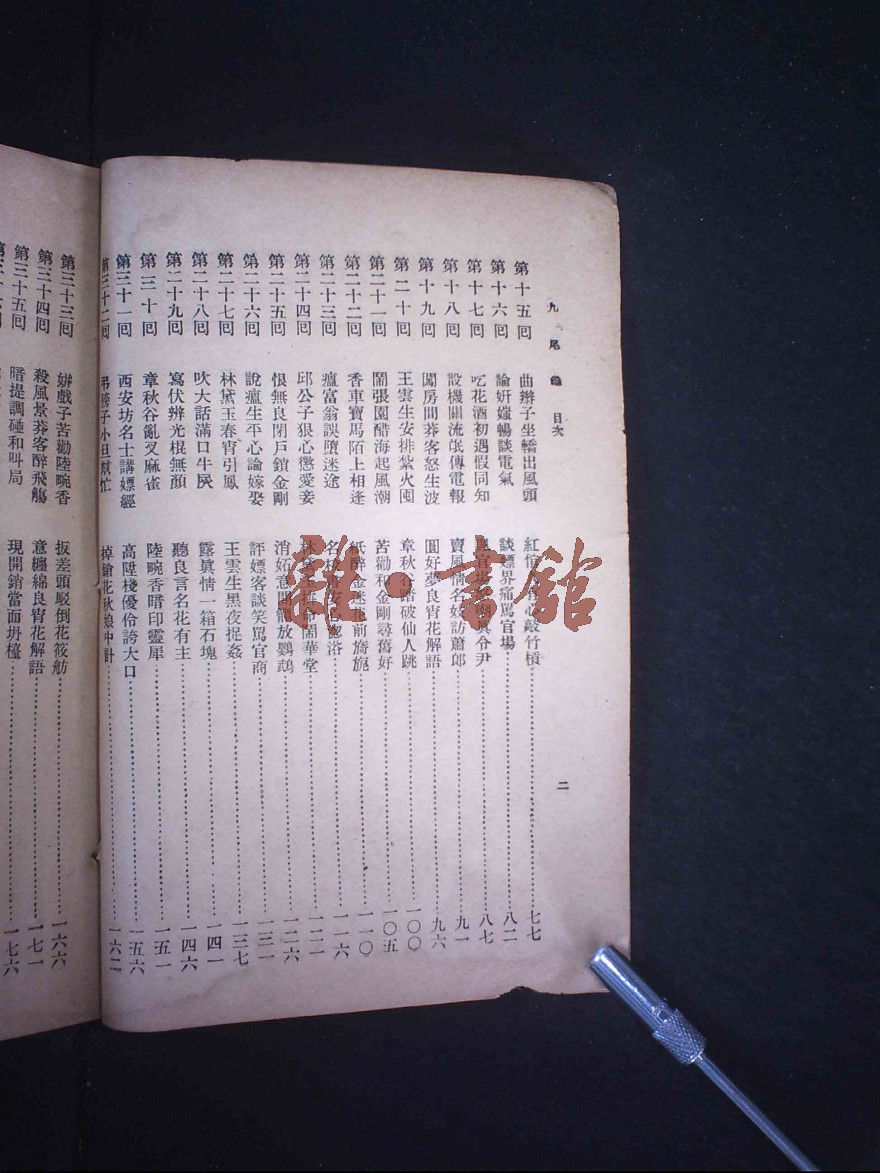 九尾龜 目次 二
第十五回 曲辮子坐轎出風頭 紅倌 心敲竹槓 七七
第十六回 論姘嬑暢談電氣 談嫖界痛罵官場 八二
第十七回 吃花酒初遇假同知 令尹 八七
第十八回 設機關流氓傳電報 賣風情名妓訪蕭郎 九一
第十九回 闖房間莽客怒生波 圓好夢良宵花解語 九六
第二十回 王雲生安排紮火囤 章秋谷踏破仙人跳 一〇〇
第二十一回 鬧張園醋海起風潮 苦勸和金剛尋舊好 一〇五
第二十二回 香車寶馬陌上相逢 紙醉金迷花前旖旎 一一〇
第二十三回 瘟富翁誤墮迷途 名 浴 一一六
第二十四回 邱公子狠心懲愛妾 林黛玉 命鬧華堂 一二一
第二十五回 恨無良閉戶鎖金剛 消妬意開籠放鸚鵡 一二六
第二十六回 說瘟生平心論嫁娶 評嫖客談笑罵官商 一三一
第二十七回 林黛玉春宵引鳳 王雲生黑夜捉姦 一三七
第二十八回 吹大話滿口牛屄 露眞情一箱石塊 一四一
第二十九回 寫伏辨光棍無顏 聽良言名花有主 一四六
第三十回 章秋谷亂叉麻雀 陸畹香暗印靈犀 一五一
第三十一回 西安坊名士講嫖經 高陞棧優伶誇大口 一五六
第三十二回 弔膀子小旦幫忙 掉鎗花秋娘中計 一六二
第三十三回 姘戲子苦勸陸畹香 扳差頭駁倒花筱舫 一六六
第三十四回 殺風景莽客醉飛觴 意纏綿良宵花解語 一七一
第三十五回 暗提調碰和叫局 現開銷當面坍檯 一七六
雜·書館